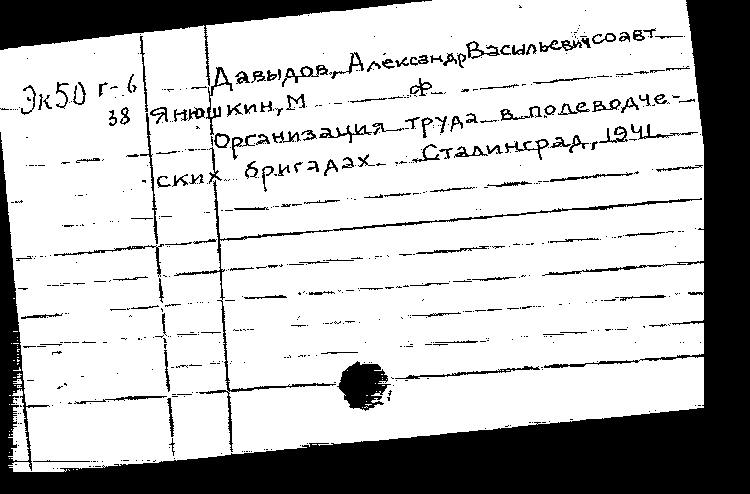 Эк50 г-6
38
Давыдов, Александр Васильевич соавт.
Янюшкин, М ф
Организация труда в полеводче-
ских бригадах Сталинград, 1941